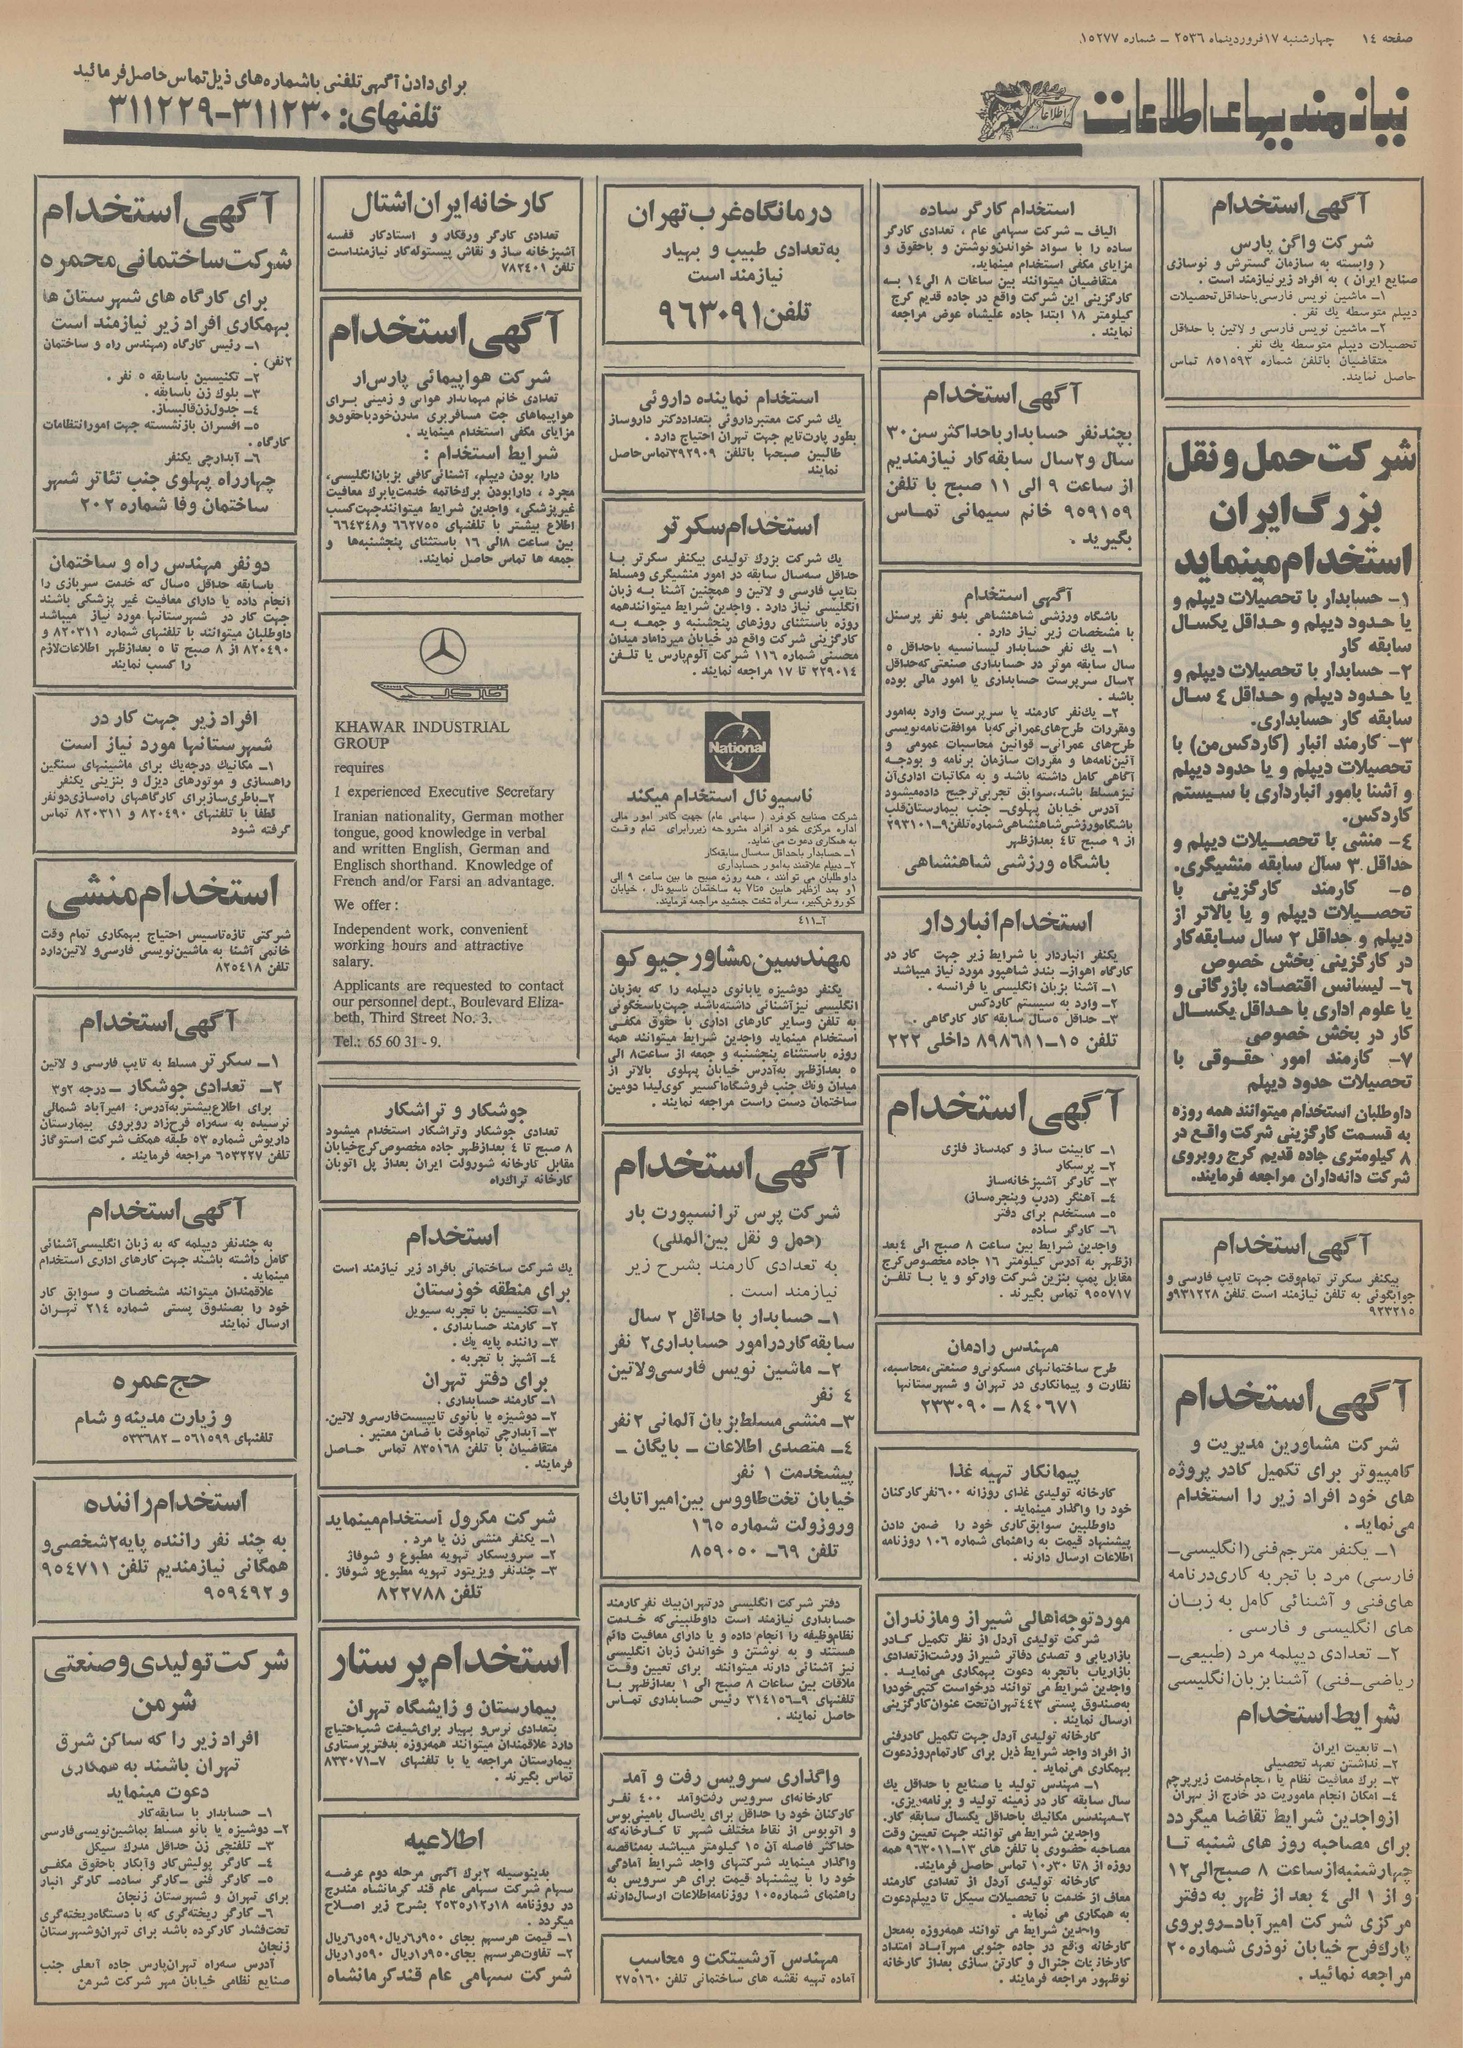 صفحه ۱۴ چهارشنبه ۱۷ فروردینماه ۲۵۳۶ ـ شماره ۱۵۲۷۷
نیازمندیهای اطلاعات
برای دادن آگهی تلفنی باشماره‌های ذیل تماس حاصل فرمائید
تلفنهای: ۳۱۱۲۳۰-۳۱۱۲۲۹
آگهی استخدام
شرکت واگن پارس
( وابسته به سازمان گسترش و نوسازی
صنایع ایران ) به افراد زیر نیازمند است .
۱ـ ماشین نویس فارسی باحداقل تحصیلات
دیپلم متوسطه یك نفر .
۲ـ ماشین نویس فارسی و لاتین با حداقل
تحصیلات دیپلم متوسطه یك نفر .
متقاضیان باتلفن شماره ۸۵۱۵۹۳ تماس
حاصل نمایند.
شرکت حمل و نقل
بزرگ ایران
استخدام مینماید
۱ـ حسابدار با تحصیلات دیپلم و
یا حدود دیپلم و حداقل یکسال
سابقه کار
۲ـ حسابدار با تحصیلات دیپلم و
یا حدود دیپلم و حداقل ۴ سال
سابقه کار حسابداری.
۳ـ کارمند انبار (کاردکس‌من) با
تحصیلات دیپلم و یا حدود دیپلم
و آشنا بامور انبارداری با سیستم
کاردکس.
۴ـ منشی با تحصیلات دیپلم و
حداقل ۳ سال سابقه منشیگری.
۵ـ کارمند کارگزینی با
تحصیلات دیپلم و یا بالاتر از
دیپلم و حداقل ۲ سال سابقه‌کار
در کارگزینی بخش خصوص
۶ـ لیسانس اقتصاد، بازرگانی و
یا علوم اداری با حداقل یکسال
کار در بخش خصوصی
۷ـ کارمند امور حقوقی با
تحصیلات حدود دیپلم
داوطلبان استخدام میتوانند همه روزه
به قسمت کارگزینی شرکت واقع در
۸ کیلومتری جاده قدیم کرج روبروی
شرکت دانه‌داران مراجعه فرمایند.
آگهی استخدام
بیکنفر سکرتر تمام‌وقت جهت تایپ فارسی و
جوابگوئی به تلفن نیازمند است تلفن ۹۳۱۲۲۸و
۹۲۳۲۱۵
آگهی استخدام
شرکت مشاورین مدیریت و
کامپیوتر برای تکمیل کادر پروژه
های خود افراد زیر را استخدام
می‌نماید .
۱ـ یکنفر مترجم‌فنی (انگلیسی-
فارسی) مرد با تجربه کاری‌درنامه
های‌فنی و آشنائی کامل به زبان
های انگلیسی و فارسی .
۲ـ تعدادی دیپلمه مرد (طبیعی-
ریاضی-فنی) آشنا بزبان‌انگلیسی
شرایط استخدام
۱ـ تابعیت ایران
۲ـ نداشتن تعهد تحصیلی
۳ـ برك معافیت نظام یا انجام‌خدمت زیرپرچم
۴ـ امکان انجام ماموریت در خارج از تهران
ازواجدین شرایط تقاضا میگردد
برای مصاحبه روز های شنبه تا
چهارشنبه‌ازساعت ۸ صبح‌الی۱۲
و از ۱ الی ۴ بعد از ظهر به دفتر
مرکزی شرکت امیرآباد-روبروی
پارك‌فرح خیابان نوذری شماره ۲۰
مراجعه نمائید .
استخدام کارگر ساده
الیاف ـ شرکت سهامی عام ، تعدادی کارگر
ساده را با سواد خواندن‌ونوشتن و باحقوق و
مزایای مکفی استخدام مینماید.
متقاضیان میتوانند بین ساعات ۸ الی ۱۴ به
کارگزینی این شرکت واقع در جاده قدیم کرج
کیلومتر ۱۸ ابتدا جاده علیشاه عوض مراجعه
نمایند .
آگهی استخدام
بچندنفر حسابدار باحداکثر سن ۳۰
سال و۲سال سابقه‌کار نیازمندیم
از ساعت ۹ الی ۱۱ صبح با تلفن
۹۵۹۱۵۹ خانم سیمانی تماس
بگیرید .
آگهی استخدام
باشگاه ورزشی شاهنشاهی بدو نفر پرسنل
با مشخصات زیر نیاز دارد .
۱ـ یك نفر حسابدار لیسانسیه باحداقل ۵
سال سابقه موثر در حسابداری صنعتی‌که‌حداقل
۲سال سرپرست حسابداری یا امور مالی بوده
باشد .
۲ـ یك‌نفر کارمند یا سرپرست وارد به‌امور
ومقررات طرح‌های‌عمرانی‌که‌با موافقت‌نامه‌نویسی
طرح‌های عمرانی- قوانین محاسبات عمومی و
آئین‌نامه‌ها و مقررات سازمان برنامه و بودجه
آگاهی کامل داشته باشد و به مکاتبات اداری‌آن
نیزمسلط باشد،سوابق تجربی‌ترجیح داده‌میشود
آدرس خیابان پهلوی- جنب بیمارستان‌قلب
باشگاه‌ورزشی‌شاهنشاهی شماره‌تلفن۹-۲۹۳۱۰۱
از ۹ صبح تا۴ بعدازظهر
باشگاه ورزشی شاهنشاهی
استخدام انباردار
یکنفر انباردار با شرایط زیر جهت کار در
کارگاه اهواز- بندر شاهپور مورد نیاز میباشد
۱ـ آشنا بزبان انگلیسی یا فرانسه .
۲ـ وارد به سیستم کاردکس
۳ـ حداقل ۵سال سابقه کار کارگاهی .
تلفن ۱۵-۸۹۸۶۱۱ داخلی ۲۲۲
آگهی استخدام
۱ـ کابینت ساز و کمدساز فلزی
۲ـ پرسکار
۳ـ کارگر آشپزخانه‌ساز
۴ـ آهنگر (درب وپنجره‌ساز)
۵ـ مستخدم برای دفتر
۶ـ کارگر ساده
واجدین شرایط بین ساعت ۸ صبح الی ۴بعد
ازظهر به آدرس کیلومتر ۱۶ جاده مخصوص‌کرج
مقابل پمپ بنزین شرکت وارکو و یا با تلفن
۹۵۵۷۱۷ تماس بگیرند .
مهندس رادمان
طرح ساختمانهای مسکونی‌و صنعتی،محاسبه،
نظارت و پیمانکاری در تهران و شهرستانها
۸۴۰۶۷۱ - ۲۳۳۰۹۰
پیمانکار تهیه غذا
کارخانه تولیدی غذای روزانه ۶۰۰نفرکارکنان
خود را واگذار مینماید .
داوطلبین سوابق‌کاری خود را ضمن دادن
پیشنهاد قیمت به راهنمای شماره ۱۰۶ روزنامه
اطلاعات ارسال دارند .
موردتوجه‌اهالی شیراز و مازندران
شرکت تولیدی آردل از نظر تکمیل کادر
بازاریابی و تصدی دفاتر شیراز ورشت‌ازتعدادی
بازاریاب باتجربه دعوت بهمکاری می‌نماید .
واجدین شرایط می توانند درخواست کتبی‌خودرا
به‌صندوق پستی ۴۴۳تهران‌تحت عنوان‌کارگزینی
ارسال نمایند .
کارخانه تولیدی آردل جهت تکمیل کادرفنی
از افراد واجد شرایط ذیل برای کارتمام‌روزدعوت
بهمکاری می‌نماید .
۱ـ مهندس تولید یا صنایع با حداقل یك
سال سابقه کار در زمینه تولید و برنامه‌ریزی.
۲ـمهندس مکانیك باحداقل یکسال سابقه کار.
واجدین شرایط می توانند جهت تعیین وقت
مصاحبه حضوری با تلفن های ۱۳-۹۶۳۰۱۱ همه
روزه از ۸تا ۱۰٫۳۰ تماس حاصل فرمایند.
کارخانه تولیدی آردل از تعدادی کارمند
معاف از خدمت با تحصیلات سیکل تا دیپلم‌دعوت
به همکاری می نماید .
واجدین شرایط می توانند همه‌روزه به‌محل
کارخانه واقع در جاده جنوبی مهرآباد امتداد
کارخانجات جنرال و کارتن سازی بعداز کارخانه
نوظهور مراجعه فرمایند .
درمانگاه غرب تهران
به تعدادی طبیب و بهیار
نیازمند است
تلفن ۹۶۳۰۹۱
استخدام نماینده داروئی
یك شرکت معتبرداروئی بتعداددکتر داروساز
بطور پارت‌تایم جهت تهران احتیاج دارد .
طالبین صبحها باتلفن ۳۹۲۹۰۹تماس‌حاصل
نمایند
استخدام سکرتر
یك شرکت بزرك تولیدی بیکنفر سکرتر با
حداقل سه‌سال سابقه در امور منشیگری ومسلط
بتایپ فارسی و لاتین و همچنین آشنا به زبان
انگلیسی نیاز دارد . واجدین شرایط میتوانندهمه
روزه باستثنای روزهای پنجشنبه و جمعه به
کارگزینی شرکت واقع در خیابان میرداماد میدان
محسنی شماره ۱۱۶ شرکت آلوم‌پارس یا تلفن
۲۲۹۰۱۴ تا ۱۷ مراجعه نمایند .
National
ناسیونال استخدام میکند
شرکت صنایع کوفرد ( سهامی عام) جهت کادر امور مالی
اداره مرکزی خود افراد مشروحه زیررابرای تمام وقت
به همکاری دعوت می نماید.
۱ـ حسابدار باحداقل سه‌سال سابقه‌کار
۲ـ دیپلم علاقمند به‌امور حسابداری
داوطلبان می توانند ، همه روزه صبح ها بین ساعت ۹ الی
۱و بعد ازظهر هابین ۵تا۷ به ساختمان ناسیونال ، خیابان
کوروش‌کبیر، سه‌راه تخت جمشید مراجعه فرمایند.
۴۱۱ـ۲
مهندسین مشاور جیوکو
یکنفر دوشیزه یابانوی دیپلمه را که به‌زبان
انگلیسی نیزآشنائی داشته‌باشد جهت‌پاسخگوئی
به تلفن وسایر کارهای اداری با حقوق مکفی
استخدام مینماید واجدین شرایط میتوانند همه
روزه باستثنای پنجشنبه و جمعه از ساعت۸ الی
۵ بعدازظهر به‌آدرس خیابان پهلوی بالاتر از
میدان ونك جنب فروشگاه‌اکسیر کوی‌لیدا دومین
ساختمان دست راست مراجعه نمایند .
آگهی استخدام
شرکت پرس ترانسپورت بار
(حمل و نقل بین‌المللی)
به تعدادی کارمند بشرح زیر
نیازمند است .
۱ـ حسابدار با حداقل ۲ سال
سابقه‌کاردرامور حسابداری۲ نفر
۲ـ ماشین نویس فارسی‌ولاتین
۴ نفر
۳ـ منشی‌مسلط‌بزبان آلمانی ۲نفر
۴ـ متصدی اطلاعات - بایگان -
پیشخدمت ۱ نفر
خیابان تخت‌طاووس بین‌امیراتابك
وروزولت شماره ۱۶۵
تلفن ۶۹- ۸۵۹۰۵۰
دفتر شرکت انگلیسی درتهران‌بیك نفرکارمند
حسابداری نیازمند است داوطلبینی‌که خدمت
نظام‌وظیفه را انجام‌داده و یا دارای معافیت دائم
هستند و به نوشتن و خواندن زبان انگلیسی
نیز آشنائی دارند میتوانند برای تعیین وقت
ملاقات بین ساعات ۸ صبح الی ۱ بعدازظهر با
تلفنهای ۹-۳۱۴۱۵۶ رئیس حسابداری تماس
حاصل نمایند .
واگذاری سرویس رفت و آمد
کارخانه‌ای سرویس رفت‌وآمد ۴۰۰ نفر
کارکنان خود را حداقل برای یك‌سال بامینی‌بوس
و اتوبوس از نقاط مختلف شهر تا کارخانه‌که
حداکثر فاصله آن ۱۵ کیلومتر میباشد به‌مناقصه
واگذار مینماید شرکتهای واجد شرایط آمادگی
خود را با پیشنهاد قیمت برای هر سرویس به
راهنمای شماره ۱۰۵ روزنامه‌اطلاعات ارسال‌دارند
مهندس آرشیتکت و محاسب
آماده تهیه نقشه های ساختمانی تلفن ۲۷۵۱۶۰
کارخانه ایران اشتال
تعدادی کارگر ورقکار و استادکار قفسه
آشپزخانه ساز و نقاش پیستوله‌کار نیازمنداست
تلفن ۷۸۲۴۰۱
آگهی استخدام
شرکت هواپیمائی پارس‌ار
تعدادی خانم مهماندار هوایی و زمینی برای
هواپیماهای جت مسافربری مدرن‌خودباحقوق‌و
مزایای مکفی استخدام مینماید .
شرایط استخدام :
دارا بودن دیپلم، آشنائی‌کافی بزبان‌انگلیسی،
مجرد ، دارابودن برك‌خاتمه خدمت‌یابرك معافیت
غیرپزشکی، واجدین شرایط میتوانندجهت‌کسب
اطلاع بیشتر با تلفنهای ۶۶۲۷۵۵ و۶۶۴۳۴۸
بین ساعت ۸الی ۱۶ باستثنای پنجشنبه‌ها و
جمعه ها تماس حاصل نمایند.
خاور
KHAWAR INDUSTRIAL
GROUP
requires
1 experienced Executive Secretary
Iranian nationality, German mother
tongue, good knowledge in verbal
and written English, German and
Englisch shorthand. Knowledge of
French and/or Farsi an advantage.
We offer :
Independent work, convenient
working hours and attractive
salary.
Applicants are requested to contact
our personnel dept., Boulevard Eliza-
beth, Third Street No. 3.
Tel.: 65 60 31 - 9.
جوشکار و تراشکار
تعدادی جوشکار وتراشکار استخدام میشود
۸ صبح تا ۴ بعدازظهر جاده مخصوص‌کرج‌خیابان
مقابل کارخانه شورولت ایران بعداز پل اتوبان
کارخانه تراك‌راه
استخدام
یك شرکت ساختمانی بافراد زیر نیازمند است
برای منطقه خوزستان
۱ـ تکنیسین با تجربه سیویل
۲ـ کارمند حسابداری .
۳ـ راننده پایه یك .
۴ـ آشپز با تجربه .
برای دفتر تهران
۱ـ کارمند حسابداری .
۲ـ دوشیزه یا بانوی تایپیست‌فارسی‌و لاتین.
۳ـ آبدارچی تمام‌وقت با ضامن معتبر .
متقاضیان با تلفن ۸۳۵۱۶۸ تماس حاصل
فرمایند .
شرکت مکرول استخدام مینماید
۱ـ یکنفر منشی زن یا مرد .
۲ـ سرویسکار تهویه مطبوع و شوفاژ
۳ـ چندنفر ویزیتور تهویه مطبوع‌و شوفاژ .
تلفن ۸۲۲۷۸۸
استخدام پرستار
بیمارستان و زایشگاه تهران
بتعدادی نرس‌و بهیار برای‌شیفت شب‌احتیاج
دارد علاقمندان میتوانند همه‌روزه بدفترپرستاری
بیمارستان مراجعه یا با تلفنهای ۷-۸۳۳۰۷۱
تماس بگیرند .
اطلاعیه
بدینوسیله ۲برك آگهی مرحله دوم عرضه
سهام شرکت سهامی عام قند کرمانشاه مندرج
در روزنامه ۲۵۳۵ر۱۲ر۱۸ بشرح زیر اصلاح
میگردد .
۱ـ قیمت هرسهم بجای ۶٫۹۵۰ریال ۶٫۵۹۰ریال
۲ـ تفاوت‌هرسهم بجای ۱٫۹۵۰ریال ۱٫۵۹۰ریال
شرکت سهامی عام قندکرمانشاه
آگهی استخدام
شرکت ساختمانی محمره
برای کارگاه های شهرستان ها
بهمکاری افراد زیر نیازمند است
۱ـ رئیس کارگاه (مهندس راه و ساختمان
۲نفر) .
۲ـ تکنیسین باسابقه ۵ نفر .
۳ـ بلوك زن باسابقه .
۴ـ جدول‌زن‌قالبساز.
۵ـ افسران بازنشسته جهت امورانتظامات
کارگاه .
۶ـ آبدارچی یکنفر
چهارراه پهلوی جنب تئاتر شهر
ساختمان وفا شماره ۲۰۲
دونفر مهندس راه و ساختمان
باسابقه حداقل ۵سال که خدمت سربازی را
انجام داده یا دارای معافیت غیر پزشکی باشند
جهت کار در شهرستانها مورد نیاز میباشد
داوطلبان میتوانند با تلفنهای شماره ۸۲۰۳۱۱ و
۸۲۰۴۹۰ از ۸ صبح تا ۵ بعدازظهر اطلاعات‌لازم
را کسب نمایند
افراد زیر جهت کار در
شهرستانها مورد نیاز است
۱ـ مکانیك درجه‌یك برای ماشینهای سنگین
راهسازی و موتورهای دیزل و بنزینی یکنفر
۲ـباطری‌سازبرای کارگاههای راه‌سازی‌دونفر
لطفا با تلفنهای ۸۲۰۴۹۰ و ۸۲۰۳۱۱ تماس
گرفته شود
استخدام منشی
شرکتی تازه‌تاسیس احتیاج بهمکاری تمام وقت
خانمی آشنا به ماشین‌نویسی فارسی‌و لاتین‌دارد
تلفن ۸۲۵۴۱۸
آگهی استخدام
۱ـ سکرتر مسلط به تایپ فارسی و لاتین
۲ـ تعدادی جوشکار - درجه ۲و۳
برای اطلاع‌بیشتربه‌آدرس: امیرآباد شمالی
نرسیده به سه‌راه فرح‌زاد روبروی بیمارستان
داریوش شماره ۵۳ طبقه همکف شرکت استوگاز
تلفن ۶۵۳۲۲۷ مراجعه فرمایند .
آگهی استخدام
به چندنفر دیپلمه که به زبان انگلیسی‌آشنائی
کامل داشته باشند جهت کارهای اداری استخدام
مینماید .
علاقمندان میتوانند مشخصات و سوابق کار
خود را بصندوق پستی شماره ۲۱۴ تهران
ارسال نمایند
حج عمره
و زیارت مدینه و شام
تلفنهای ۵۶۱۵۹۹ - ۵۳۳۶۸۲
استخدام راننده
به چند نفر راننده پایه۲شخصی‌و
همگانی نیازمندیم تلفن ۹۵۴۷۱۱
و ۹۵۹۴۹۲
شرکت تولیدی و صنعتی
شرمن
افراد زیر را که ساکن شرق
تهران باشند به همکاری
دعوت مینماید
۱ـ حسابدار با سابقه‌کار
۲ـ دوشیزه یا بانو مسلط بماشین‌نویسی‌فارسی
۳ـ تلفنچی زن حداقل مدرك سیکل
۴ـ کارگر پولیش‌کار وآبکار باحقوق مکفی
۵ـ کارگر فنی -کارگر ساده- کارگر انبار
برای تهران و شهرستان زنجان
۶ـ کارگر ریخته‌گری که با دستگاه‌ریخته‌گری
تحت‌فشار کارکرده باشد برای تهران‌وشهرستان
زنجان
آدرس سه‌راه تهران‌پارس جاده آبعلی جنب
صنایع نظامی خیابان مهر شرکت شرمن